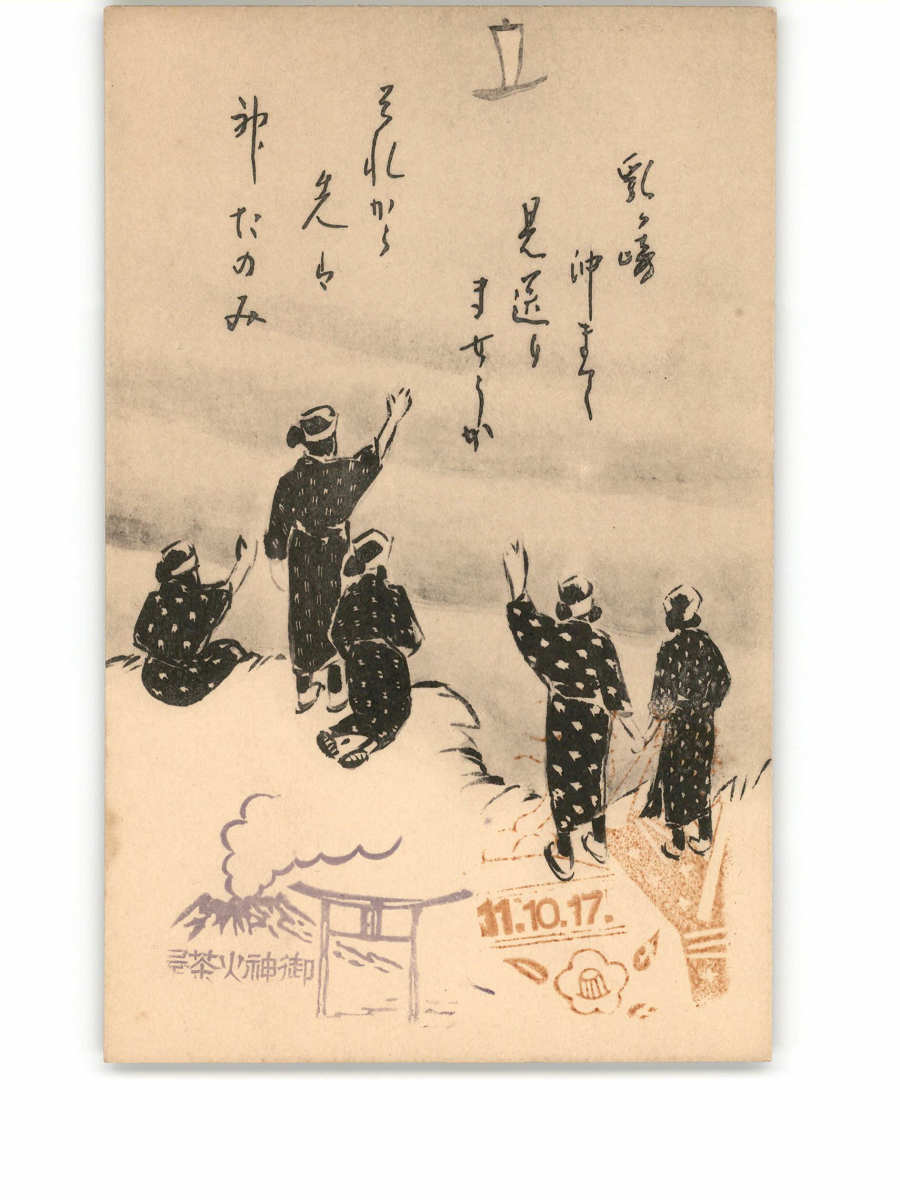 乳ヶ崎
沖まで
見送り
ませうが
それから
先は
神だのみ
御神火茶屋
11.10.17.